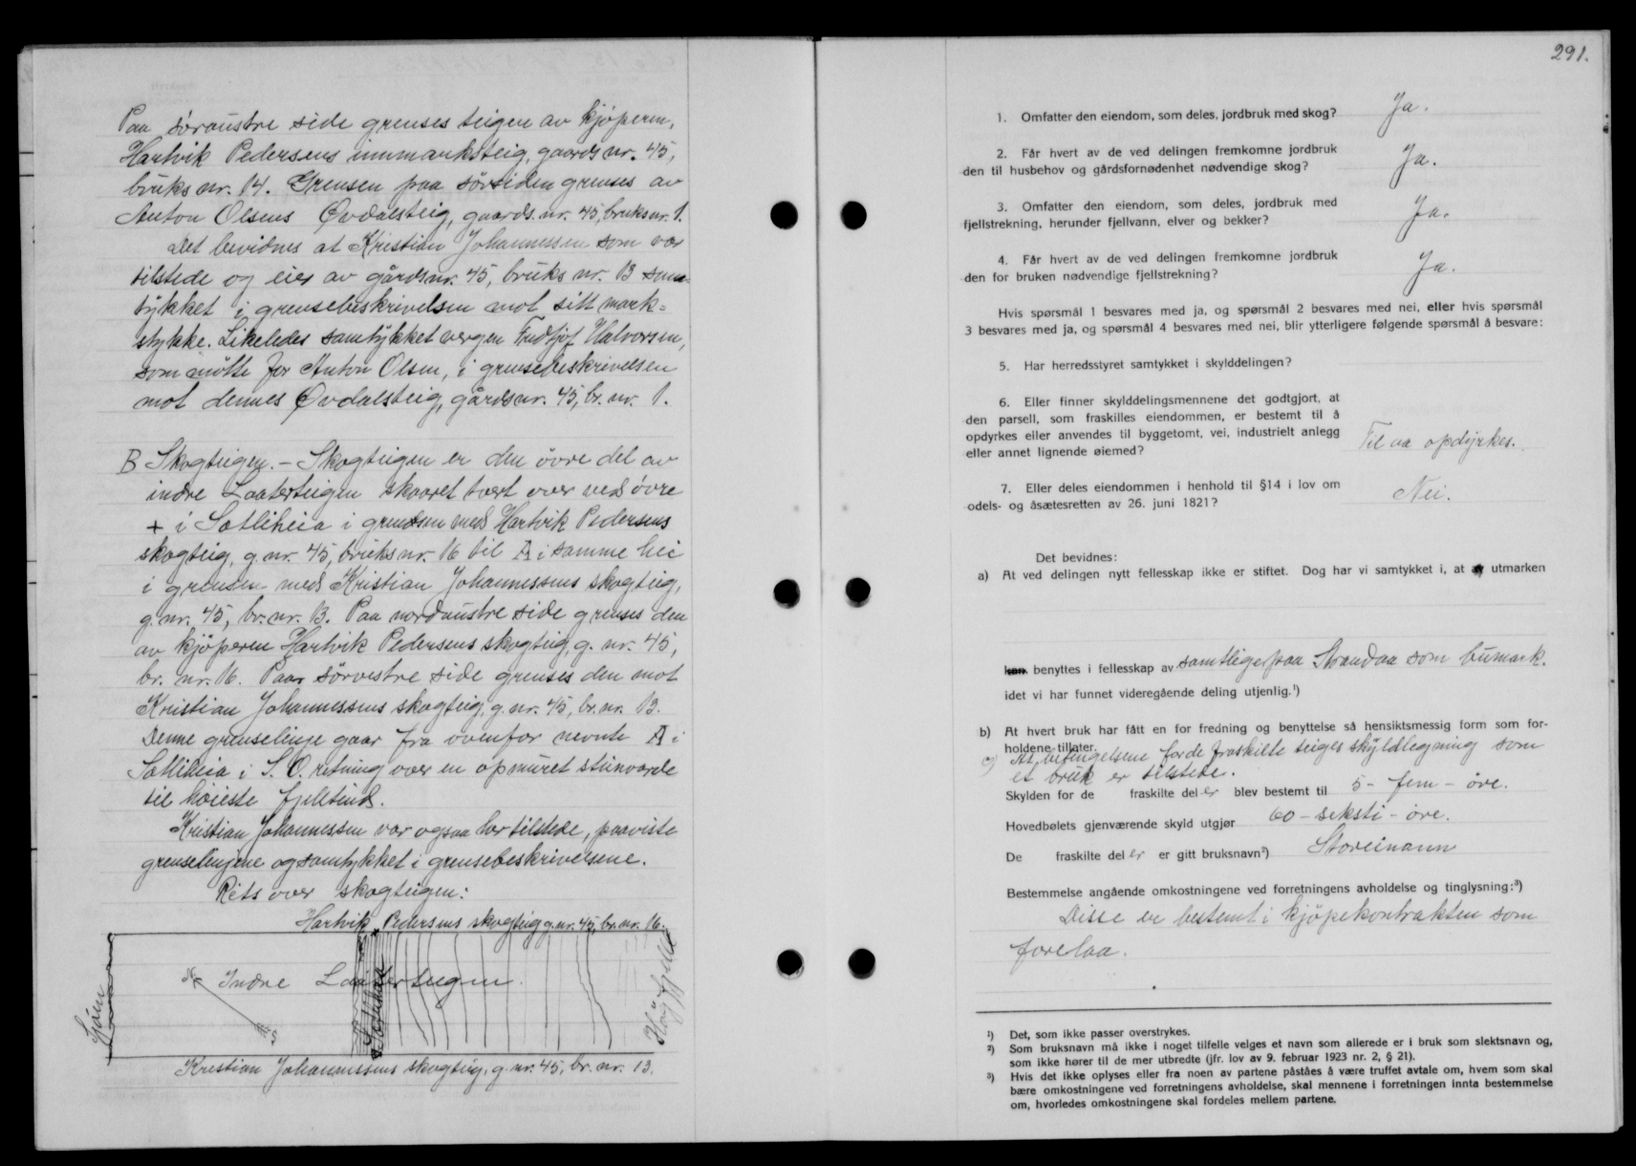 Paa søraustre side grenses teigen av kjøperen,
Hartvik Pedersens innmarksteig, gaards nr. 45,
bruks nr. 14. Grensen paa sørsiden grenses av
Anton Olsens Øvdalsteig, gaards. nr. 45, bruksnr. 1.
Det bevidnes at Kristian Johannessen som var
tilstede og eier av gårdsnr. 45, bruks nr. 13 sam-
tykket i grensebeskrivelsen mot sitt mark-
stykke. Likeledes samtykket vergen Fridtjof Halvorsen,
som møtte for Anton Olsen, i grensebeskrivelsen
mot dennes Øvdalsteig, gårdsnr. 45, br. nr. 1.
B Skogteigen. - Skogteigen er den øvre del av
indre Laaterteigen skaaret tvert over ved øvre
+ i Sætliheia i grensen med Hartvik Pedersens
skogteig, g. nr. 45, bruks nr. 16 til A i samme hei
i grensen med Kristian Johannessens skogteig,
g. nr. 45, br. nr. 13. Paa nordaustre side grenses den
av kjøperen Hartvik Pedersens skogteig, g. nr. 45,
br. nr. 16. Paa sørvestre side grenses den mot
Kristian Johannessens skogteig, g. nr. 45, br. nr. 13.
Denne grenselinje gaar fra ovenfor nevnte A i
Sætliheia i S. O. retning over en opmuret steinvarde
til høieste fjelltind.
Kristian Johannessen var ogsaa her tilstede, paaviste
grenselinjene og samtykket i grensebeskrivelsene.
Rits over skogteigen:
Hartvik Pedersens skogteig g. nr. 45, br. nr. 16.
Indre Laaterteigen.
N
S
Sjøen
Sætliheia
Høgfjell
Kristian Johannessens skogteig, g. nr. 45, br. nr. 13.
291.
1. Omfatter den eiendom, som deles, jordbruk med skog? Ja.
2. Får hvert av de ved delingen fremkomne jordbruk
den til husbehov og gårdsfornødenhet nødvendige skog? Ja.
3. Omfatter den eiendom, som deles, jordbruk med
fjellstrekning, herunder fjellvann, elver og bekker? Ja.
4. Får hvert av de ved delingen fremkomne jordbruk
den for bruken nødvendige fjellstrekning? Ja.
Hvis spørsmål 1 besvares med ja, og spørsmål 2 besvares med nei, eller hvis spørsmål
3 besvares med ja, og spørsmål 4 besvares med nei, blir ytterligere følgende spørsmål å besvare:
5. Har herredsstyret samtykket i skylddelingen?
6. Eller finner skylddelingsmennene det godtgjort, at
den parsell, som fraskilles eiendommen, er bestemt til å
opdyrkes eller anvendes til byggetomt, vei, industrielt anlegg
eller annet lignende øiemed? Til aa opdyrkes.
7. Eller deles eiendommen i henhold til §14 i lov om
odels- og åsætesretten av 26. juni 1821? Nei.
Det bevidnes:
a) At ved delingen nytt fellesskap ikke er stiftet. Dog har vi samtykket i, at av utmarken
kan benyttes i fellesskap av samtlige paa Strandaa som bumark.
idet vi har funnet videregående deling utjenlig.¹)
b) At hvert bruk har fått en for fredning og benyttelse så hensiktsmessig form som for-
holdene tillater.
c) At betingelsene for de fraskilte teiges skyldlegning som
et bruk er tilstede.
Skylden for de fraskilte deler blev bestemt til 5 - fem - øre.
Hovedbølets gjenværende skyld utgjør 60 - seksti - øre.
De fraskilte deler er gitt bruksnavn²) Storeinann
Bestemmelse angående omkostningene ved forretningens avholdelse og tinglysning:³)
Disse er bestemt i kjøpekontrakten som
forelaa.
¹) Det, som ikke passer overstrykes.
²) Som bruksnavn må ikke i noget tilfelle velges et navn som allerede er i bruk som slektsnavn og,
som ikke hører til de mer utbredte (jfr. lov av 9. februar 1923 nr. 2, § 21).
³) Hvis det ikke oplyses eller fra noen av partene påståes å være truffet avtale om, hvem som skal
bære omkostningene ved forretningens avholdelse, skal mennene i forretningen innta bestemmelse
om, hvorledes omkostningene skal fordeles mellem partene.